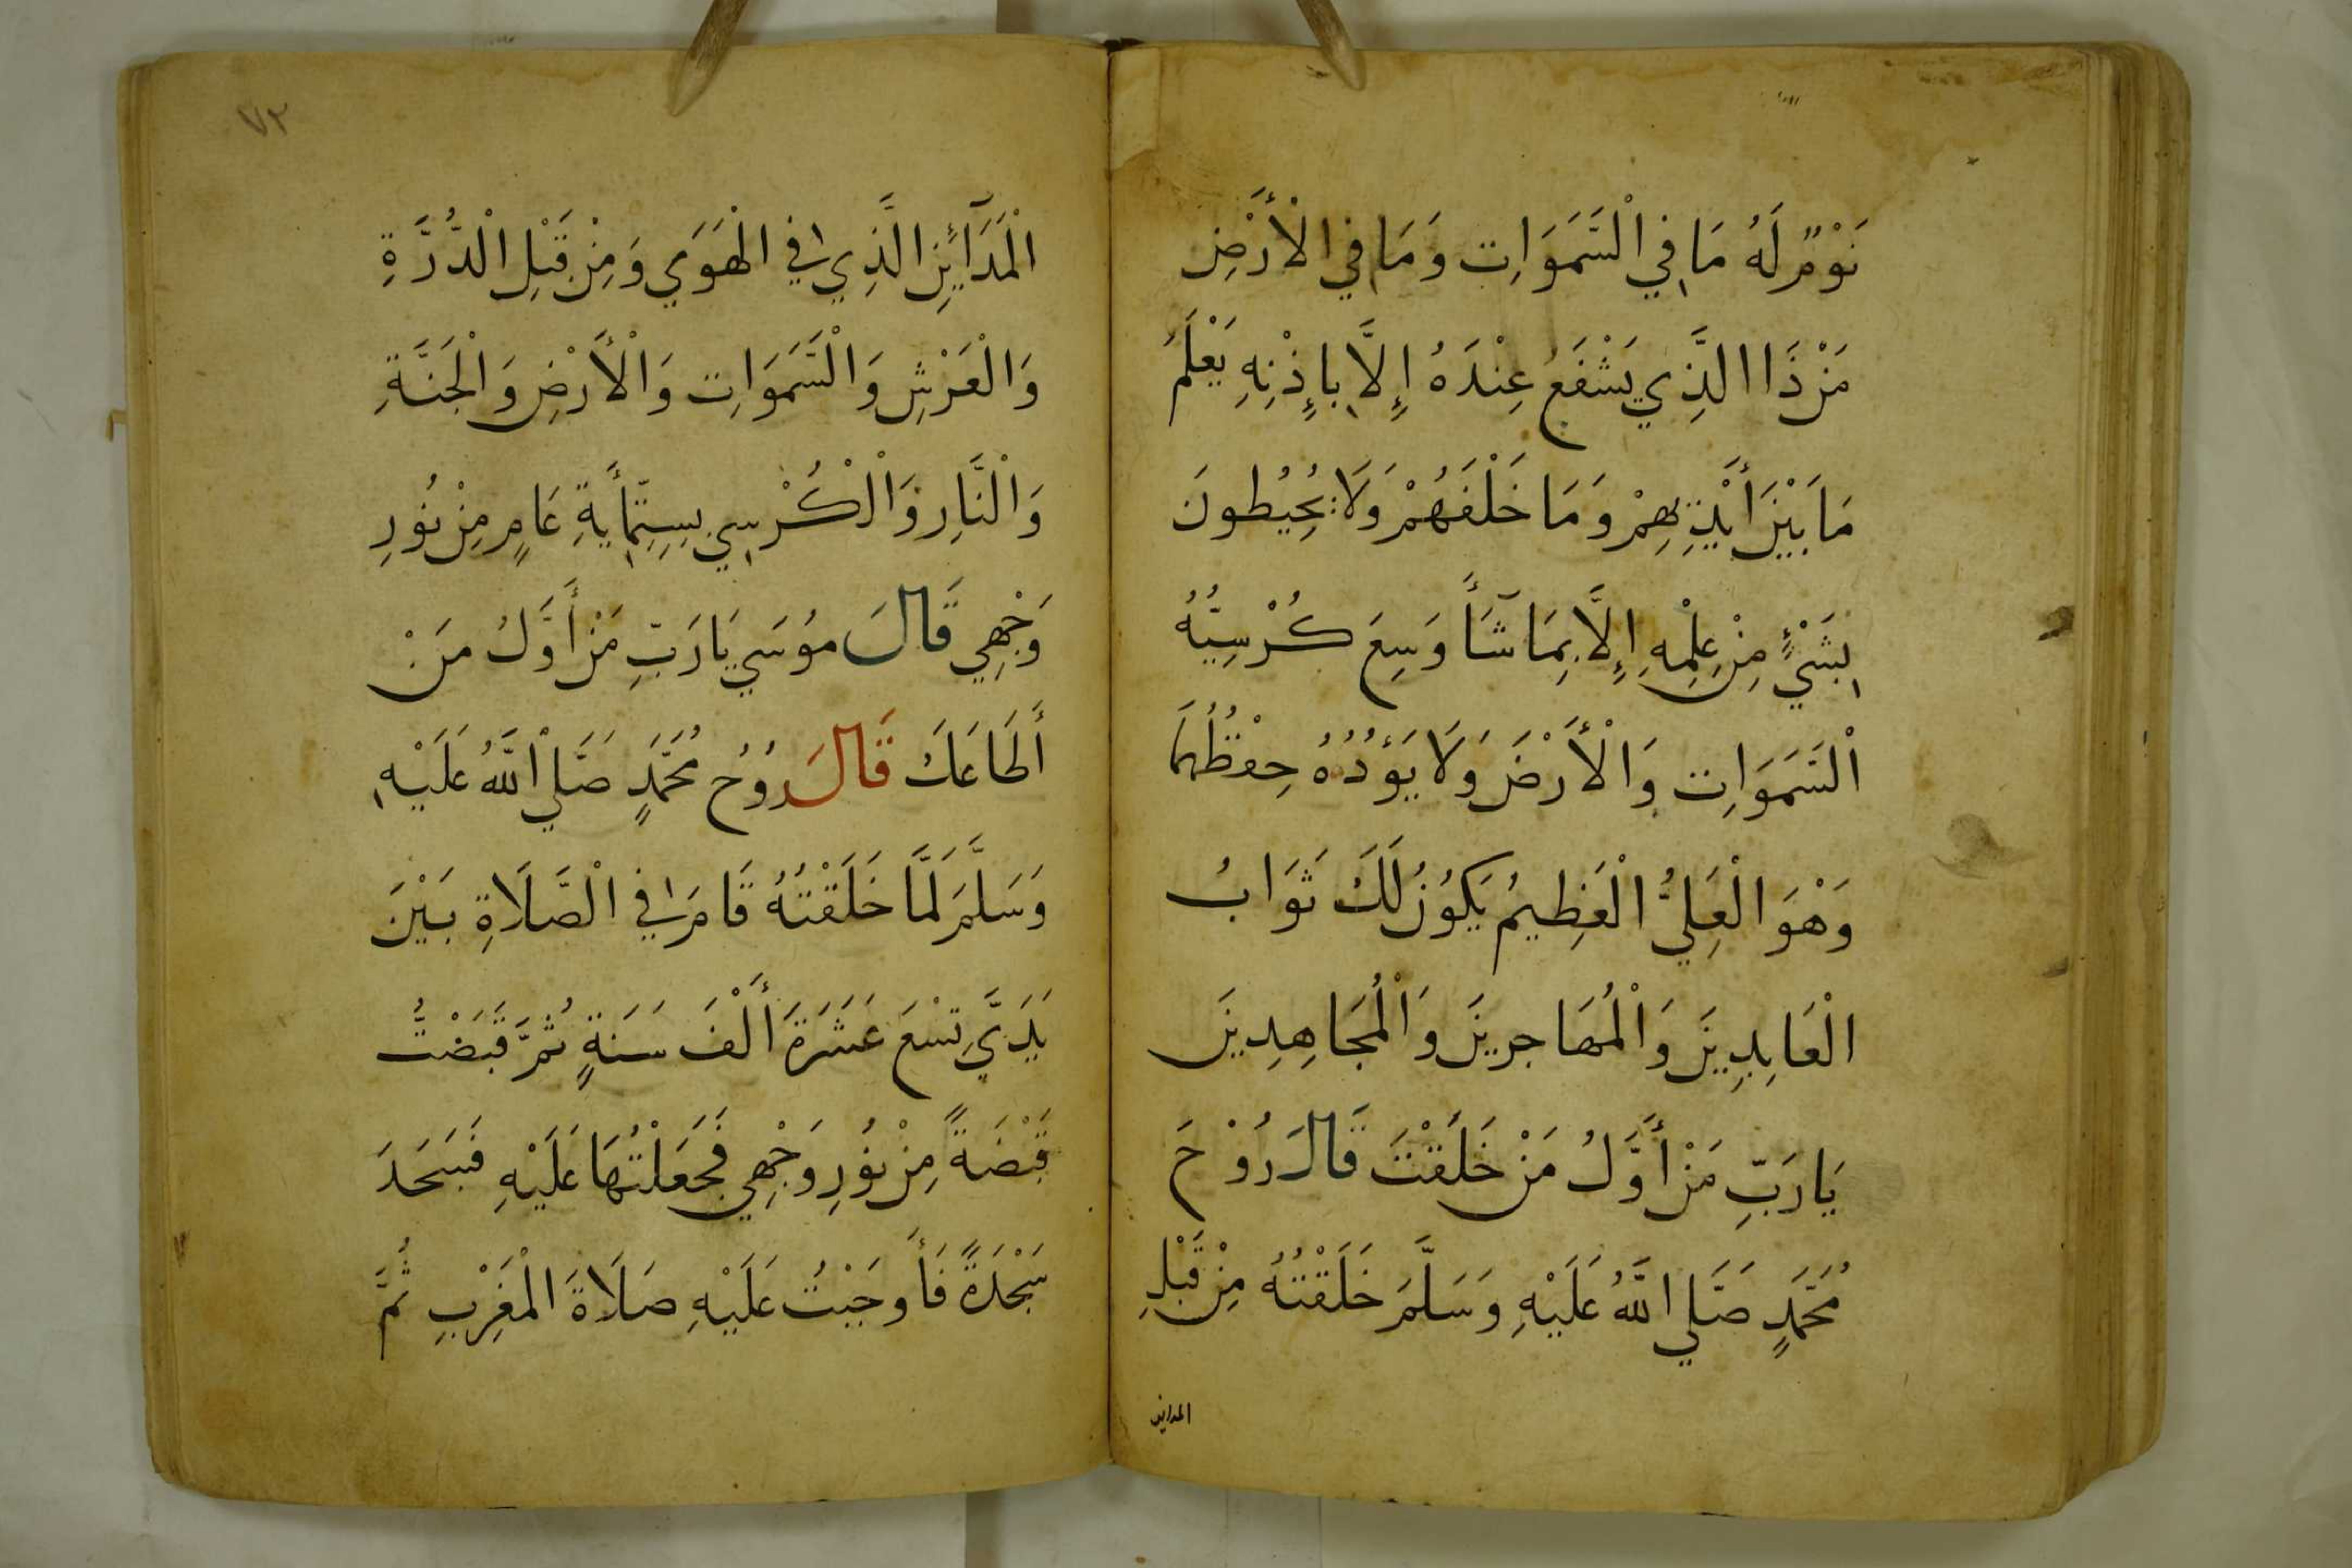 نَوْمٌ لَهُ مَا فِي الْسَّمَوَاتِ وَمَا فِي الْأَرْضِ
مَنْ ذَا الَّذِي يَشْفَعُ عِنْدَهُ إِلَّا بِإِذْنِهِ يَعْلَمُ
مَا بَيْنَ أَيْدِيهِمْ وَمَا خَلْفَهُمْ وَلَا يُحِيْطُونَ
بِشَيْءٍ مِنْ عِلْمِهِ إِلَّا بِمَا شَآءَ وَسِعَ كُرْسِيُّهُ
الْسَّمَوَاتِ وَالْأَرْضَ وَلَا يَؤُدُهُ حِفْظُهُمَا
وَهْوَ الْعَلِيُّ الْعَظِيمُ يَكُوْنُ لَكَ ثَوَابُ
الْعَابِدِيْنَ وَالْمُهَاجِرِينَ وَالْمُجَاهِدِينَ
يَارَبِّ مَنْ أَوَّلُ مَنْ خَلَقْتَ قَالَ رُوْحَ
مُحَمَّدٍ صَلَّي اللَّهُ عَلَيْهِ وَسَلَّمَ خَلَقْتُهُ مِنْ قَبْلِ
المداين
٧٢
الْمَدَآئِنِ الَّذِي فِي الْهَوَي وَمِنْ قَبْلِ الْدُّرَّةِ
وَالْعَرْشِ وَالْسَّمَوَاتِ وَالْأَرْضِ وَالْجَنَّةِ
وَالْنَّارِ وَالْكُرْسِي بِسِتِّمَأيَةِ عَامٍ مِنْ نُوْرِ
وَجْهِي قَالَ مُوْسَي يَارَبِّ مَنْ أَوَّلُ مَنْ
أَطَاعَكَ قَالَ رُوْحُ مُحَمَّدٍ صَلَّي اللَّهُ عَلَيْهِ
وَسَلَّمَ لَمَّا خَلَقْتُهُ قَامَ فِي الْصَّلَاةِ بَيْنَ
يَدَيَّ تِسْعَ عَشَرَةَ أَلْفَ سَنَةٍ ثُمَّ قَبَضْتُ
قَبْضَةً مِنْ نُوْرِ وَجْهِي فَجَعَلْتُهَا عَلَيْهِ فَسَجَدَ
سَجْدَةً فَأَوجَبْتُ عَلَيْهِ صَلَاةَ الْمَغْرِبِ ثُمَّ